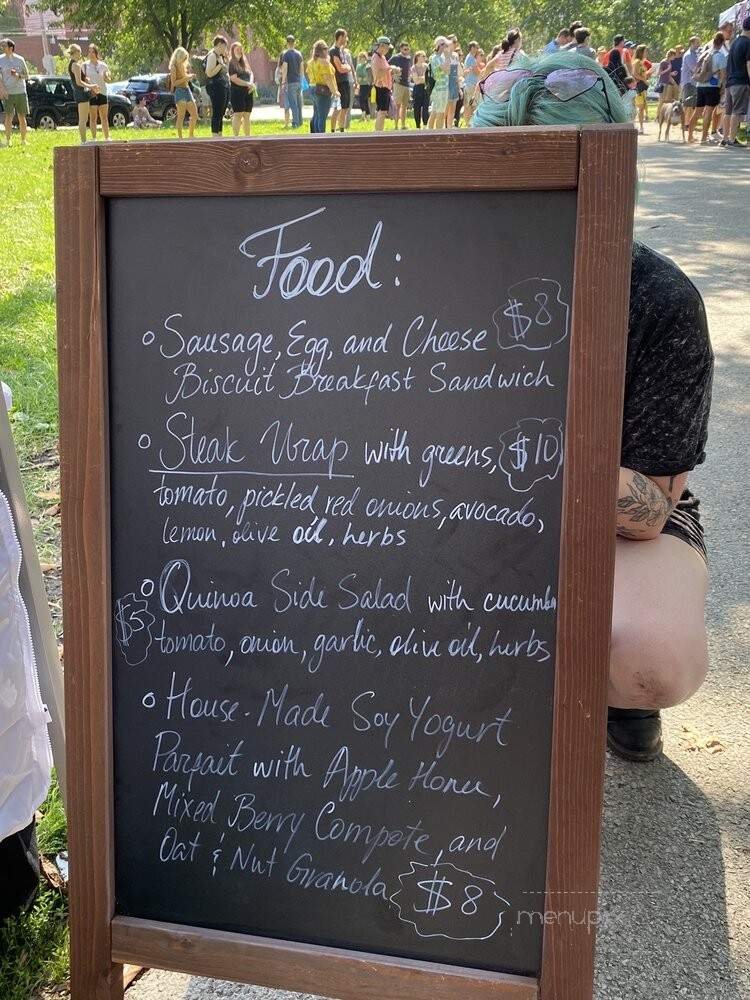 Food:
• Sausage, Egg, and Cheese $8
Biscuit Breakfast Sandwich
• Steak Wrap with greens, $10
tomato, pickled red onions, avocado,
lemon, olive oil, herbs
• Quinoa Side Salad with cucumber
$5 tomato, onion, garlic, olive oil, herbs
• House-Made Soy Yogurt
Parfait with Apple Honee,
Mixed Berry Compote, and
Oat & Nut Granola $8
menupix